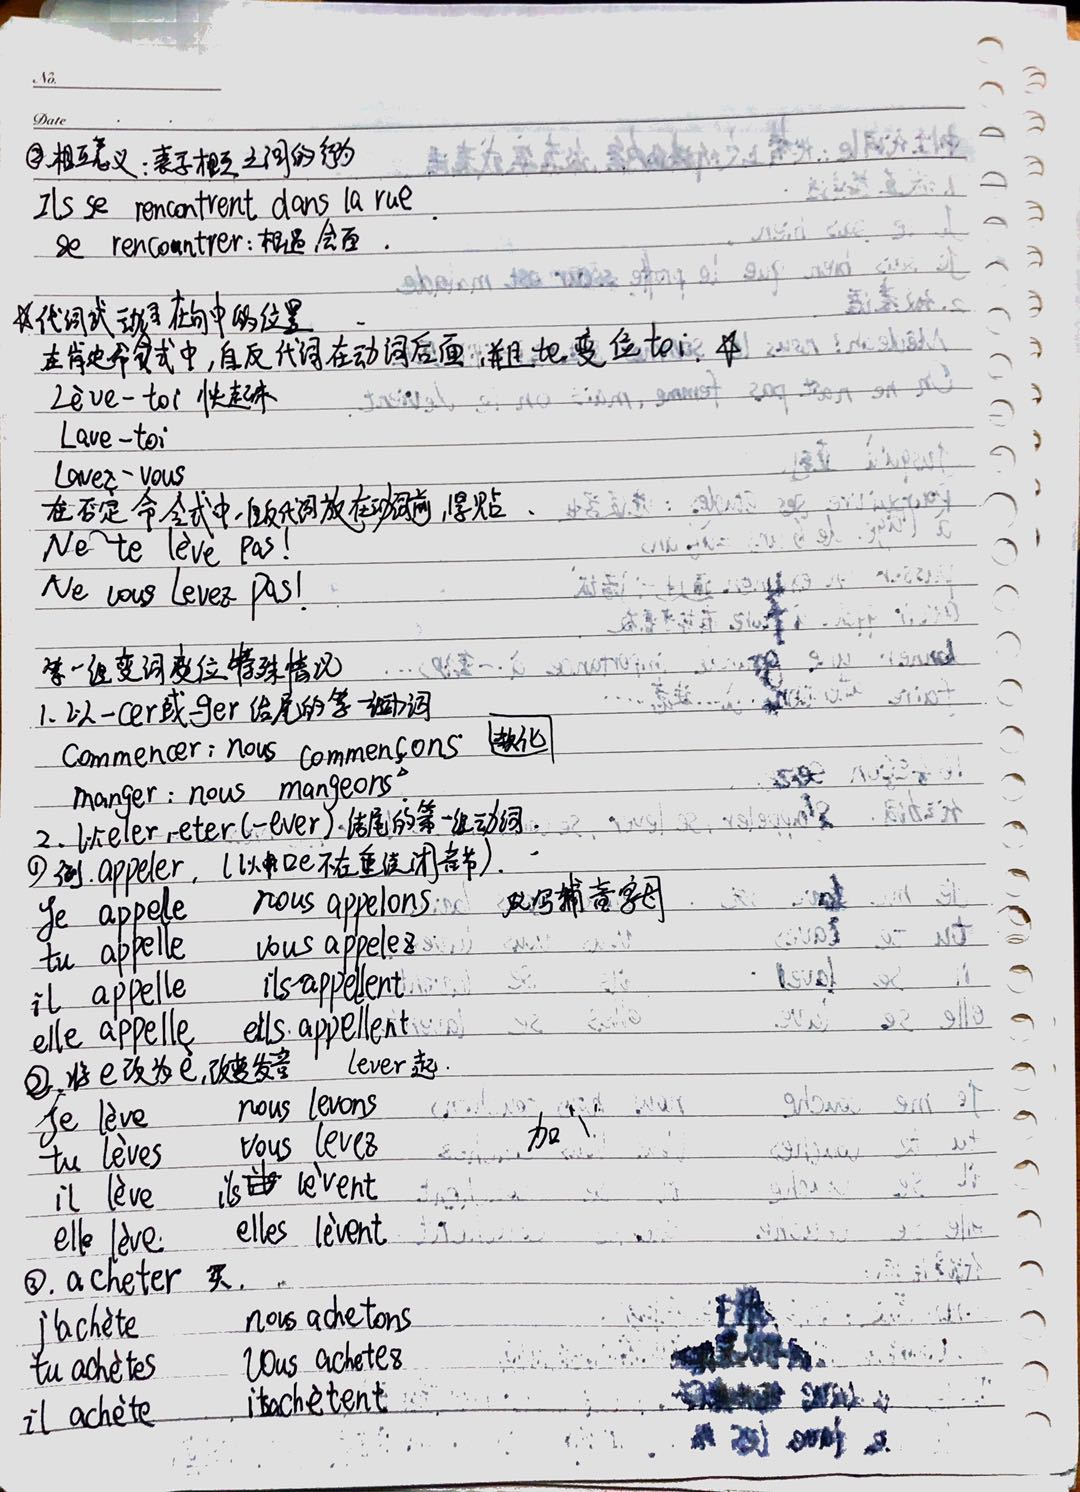 No.
Date
②相互意义：表示相互之间的行为
Ils se rencontrent dans la rue.
se rencountrer：相遇,会面.
☆代词式动词在句中的位置
在肯定命令式中,自反代词在动词后面,且te变位toi.☆
Lève-toi 快起来
Lave-toi
Lavez-vous
在否定命令式中,自反代词放在动词前,
Ne te lève pas!
Ne vous Levez pas!
第一组变词变位特殊情况
1.以-cer或-ger结尾的第一组动词
Commencer: nous commençons 软化
manger: nous mangeons
2.以eler,eter(-ever)结尾的第一组动词.
①例.appeler, (以e不在重读闭音节).
Je appelle nous appelons: 双写辅音字母
tu appelle vous appelez
il appelle ils appellent
elle appelle ells appellent
②.将e改为è,改变发音 Lever起.
Je lève nous levons
tu lèves vous levez 加、
il lève ils lèvent
elle lève. elles lèvent
③.acheter 买.
j'achète nous achetons
tu achètes Vous achetez
il achète ilsachètent